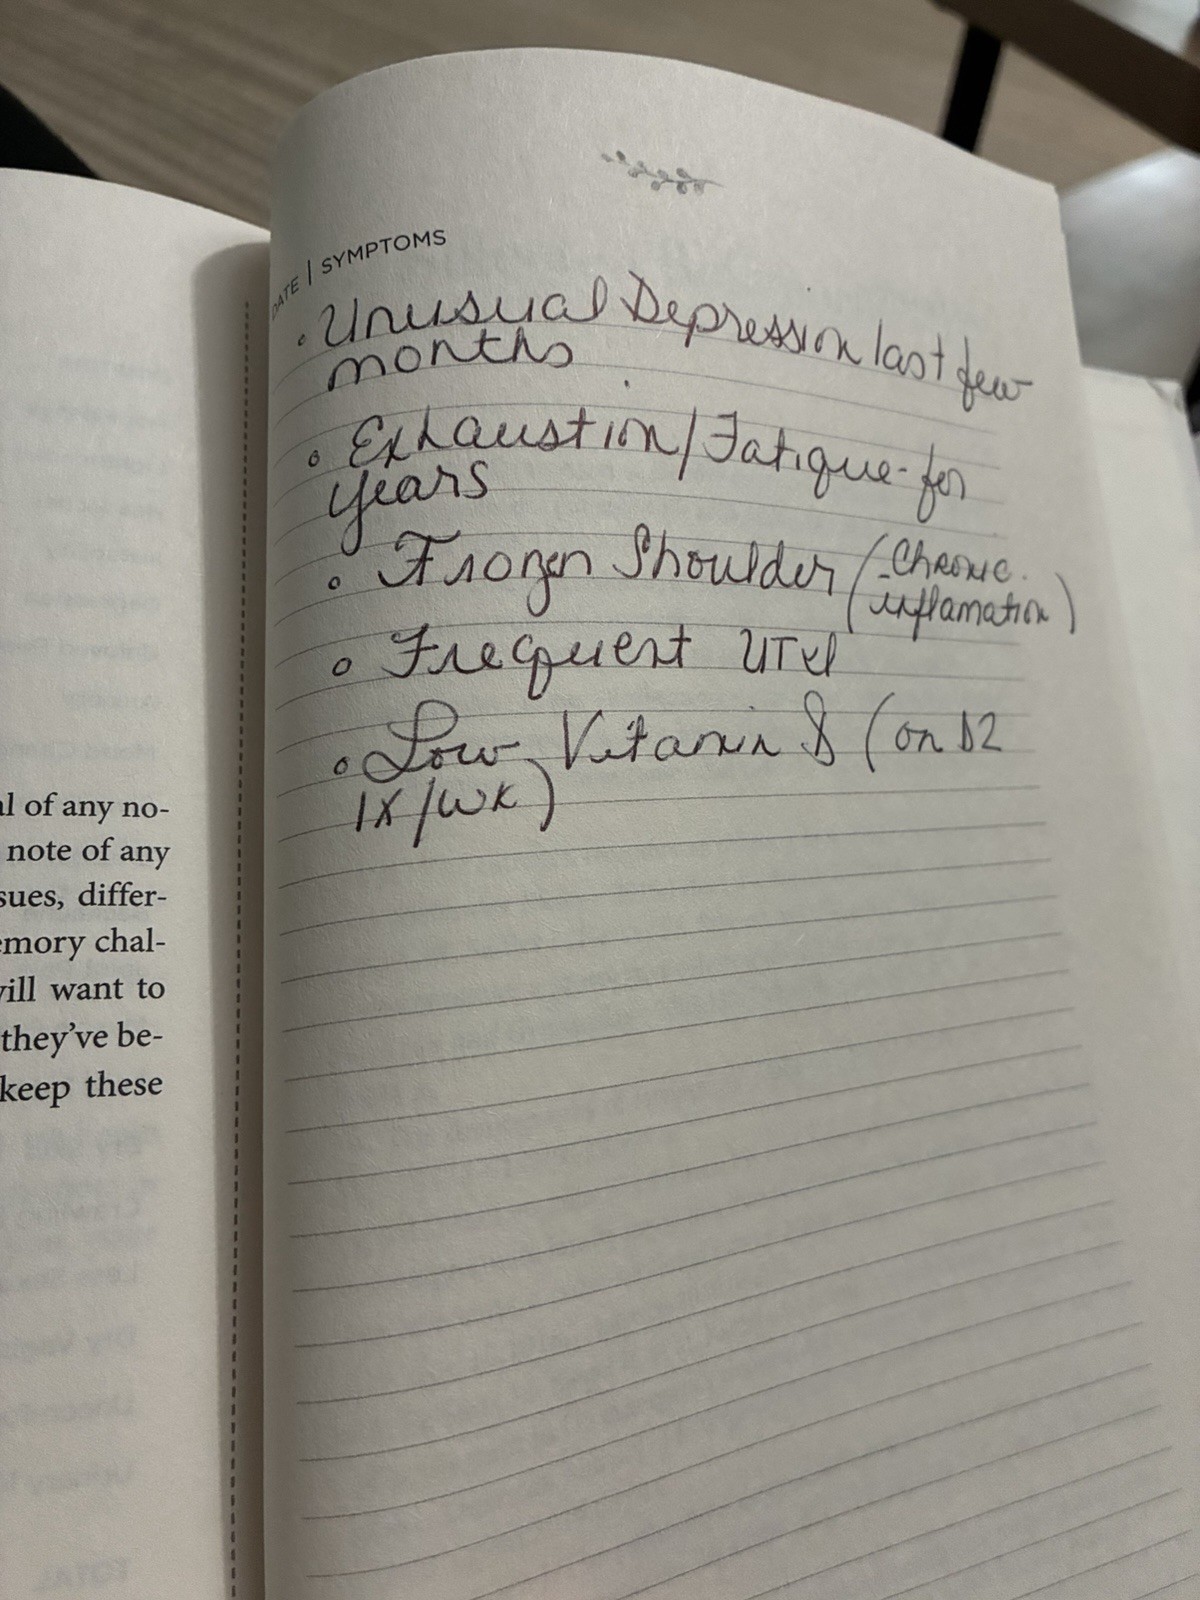 DATE | SYMPTOMS
• Unusual Depression last few
months
• Exhaustion/Fatigue- for
years
• Frozen Shoulder (Chronic
inflamation)
• Frequent UTIs
• Low Vitamin D (on D2
1X/WK)
al of any no-
note of any
sues, differ-
emory chal-
will want to
they've be-
keep these